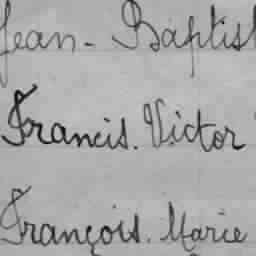 Jean-Baptist
Francis. Victor
François. Marie